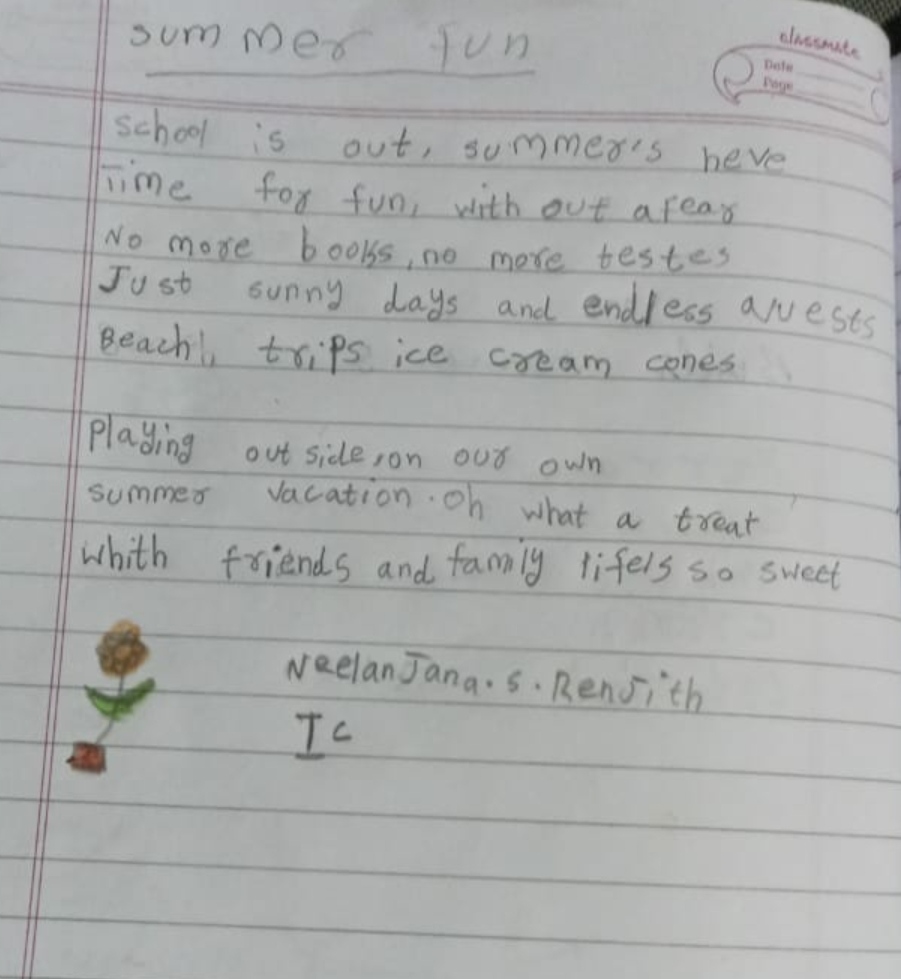 summer fun
classmate
Date
Page
school is out, summer's heve
Time for fun, with out a fear
No more books, no more testes
Just sunny days and endless avests
Beach, trips ice cream cones
Playing out side, on our own
summer vacation. oh what a treat
whith friends and family lifeis so sweet
Neelanjana. S. Renjith
I C